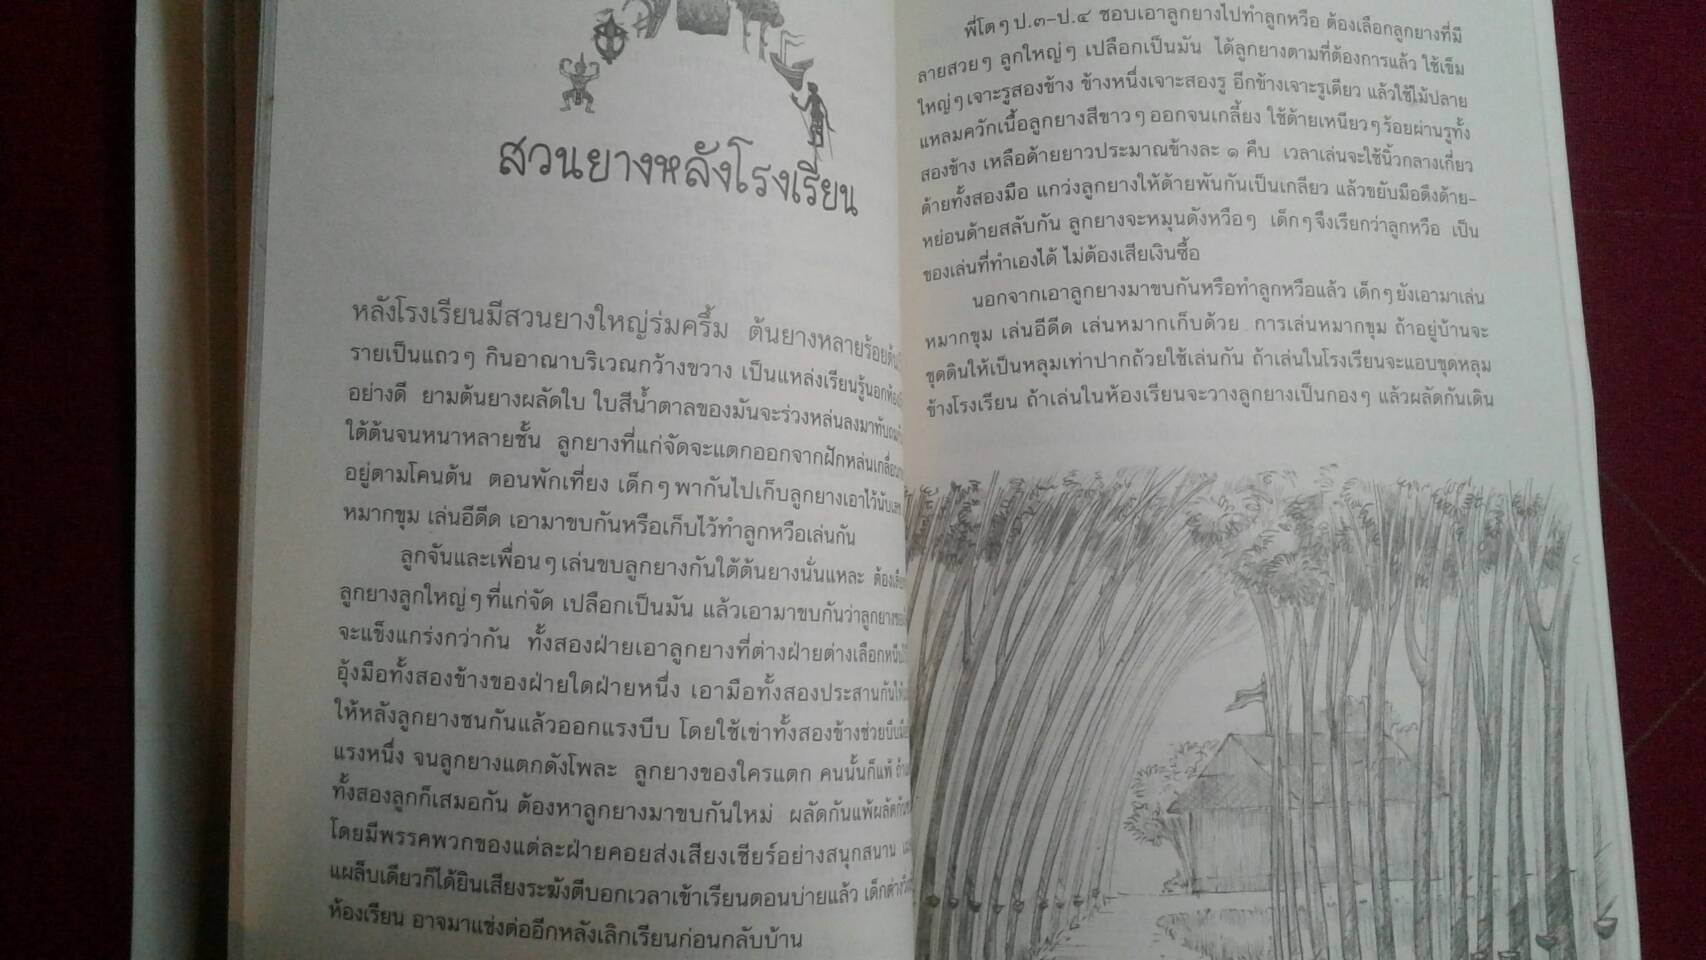 สวนยางหลังโรงเรียน
หลังโรงเรียนมีสวนยางใหญ่ร่มครึ้ม ต้นยางหลายร้อยต้น
รายเป็นแถวๆ กินอาณาบริเวณกว้างขวาง เป็นแหล่งเรียนรู้นอกห้อง
อย่างดี ยามต้นยางผลัดใบ ใบสีน้ำตาลของมันจะร่วงหล่นลงมาทับถม
ใต้ต้นจนหนาหลายชั้น ลูกยางที่แก่จัดจะแตกออกจากฝักหล่นเกลื่อน
อยู่ตามโคนต้น ตอนพักเที่ยง เด็กๆ พากันไปเก็บลูกยางเอาไว้นับเลข
หมากขุม เล่นอีดีด เอามาขบกันหรือเก็บไว้ทำลูกหวือเล่นกัน
ลูกจันและเพื่อนๆ เล่นขบลูกยางกันใต้ต้นยางนั่นแหละ ต้อง
ลูกยางลูกใหญ่ๆ ที่แก่จัด เปลือกเป็นมัน แล้วเอามาขบกันว่าลูกยาง
จะแข็งแกร่งกว่ากัน ทั้งสองฝ่ายเอาลูกยางที่ต่างฝ่ายต่างเลือก
อุ้งมือทั้งสองข้างของฝ่ายใดฝ่ายหนึ่ง เอามือทั้งสองประสานกัน
ให้หลังลูกยางชนกันแล้วออกแรงบีบ โดยใช้เข่าทั้งสองข้างช่วยบีบ
แรงหนึ่ง จนลูกยางแตกดังโพละ ลูกยางของใครแตก คนนั้นก็แพ้
ทั้งสองลูกก็เสมอกัน ต้องหาลูกยางมาขบกันใหม่ ผลัดกันแพ้ผลัดกัน
โดยมีพรรคพวกของแต่ละฝ่ายคอยส่งเสียงเชียร์อย่างสนุกสนาน
แผล็บเดียวก็ได้ยินเสียงระฆังตีบอกเวลาเข้าเรียนตอนบ่ายแล้ว เด็กต่าง
ห้องเรียน อาจมาแข่งต่ออีกหลังเลิกเรียนก่อนกลับบ้าน
พี่โตๆ ป.๓-ป.๔ ชอบเอาลูกยางไปทำลูกหวือ ต้องเลือกลูกยางที่มี
ลายสวยๆ ลูกใหญ่ๆ เปลือกเป็นมัน ได้ลูกยางตามที่ต้องการแล้ว ใช้เข็ม
ใหญ่ๆ เจาะรูสองข้าง ข้างหนึ่งเจาะสองรู อีกข้างเจาะรูเดียว แล้วใช้ไม้ปลาย
แหลมควักเนื้อลูกยางสีขาวๆ ออกจนเกลี้ยง ใช้ด้ายเหนียวๆ ร้อยผ่านรูทั้ง
สองข้าง เหลือด้ายยาวประมาณข้างละ ๑ คืบ เวลาเล่นจะใช้นิ้วกลางเกี่ยว
ด้ายทั้งสองมือ แกว่งลูกยางให้ด้ายพันกันเป็นเกลียว แล้วขยับมือดึงด้าย-
หย่อนด้ายสลับกัน ลูกยางจะหมุนดังหวือๆ เด็กๆ จึงเรียกว่าลูกหวือ เป็น
ของเล่นที่ทำเองได้ ไม่ต้องเสียเงินซื้อ
นอกจากเอาลูกยางมาขบกันหรือทำลูกหวือแล้ว เด็กๆ ยังเอามาเล่น
หมากขุม เล่นอีดีด เล่นหมากเก็บด้วย การเล่นหมากขุม ถ้าอยู่บ้านจะ
ขุดดินให้เป็นหลุมเท่าปากถ้วยใช้เล่นกัน ถ้าเล่นในโรงเรียนจะแอบขุดหลุม
ข้างโรงเรียน ถ้าเล่นในห้องเรียนจะวางลูกยางเป็นกองๆ แล้วผลัดกันเดิน